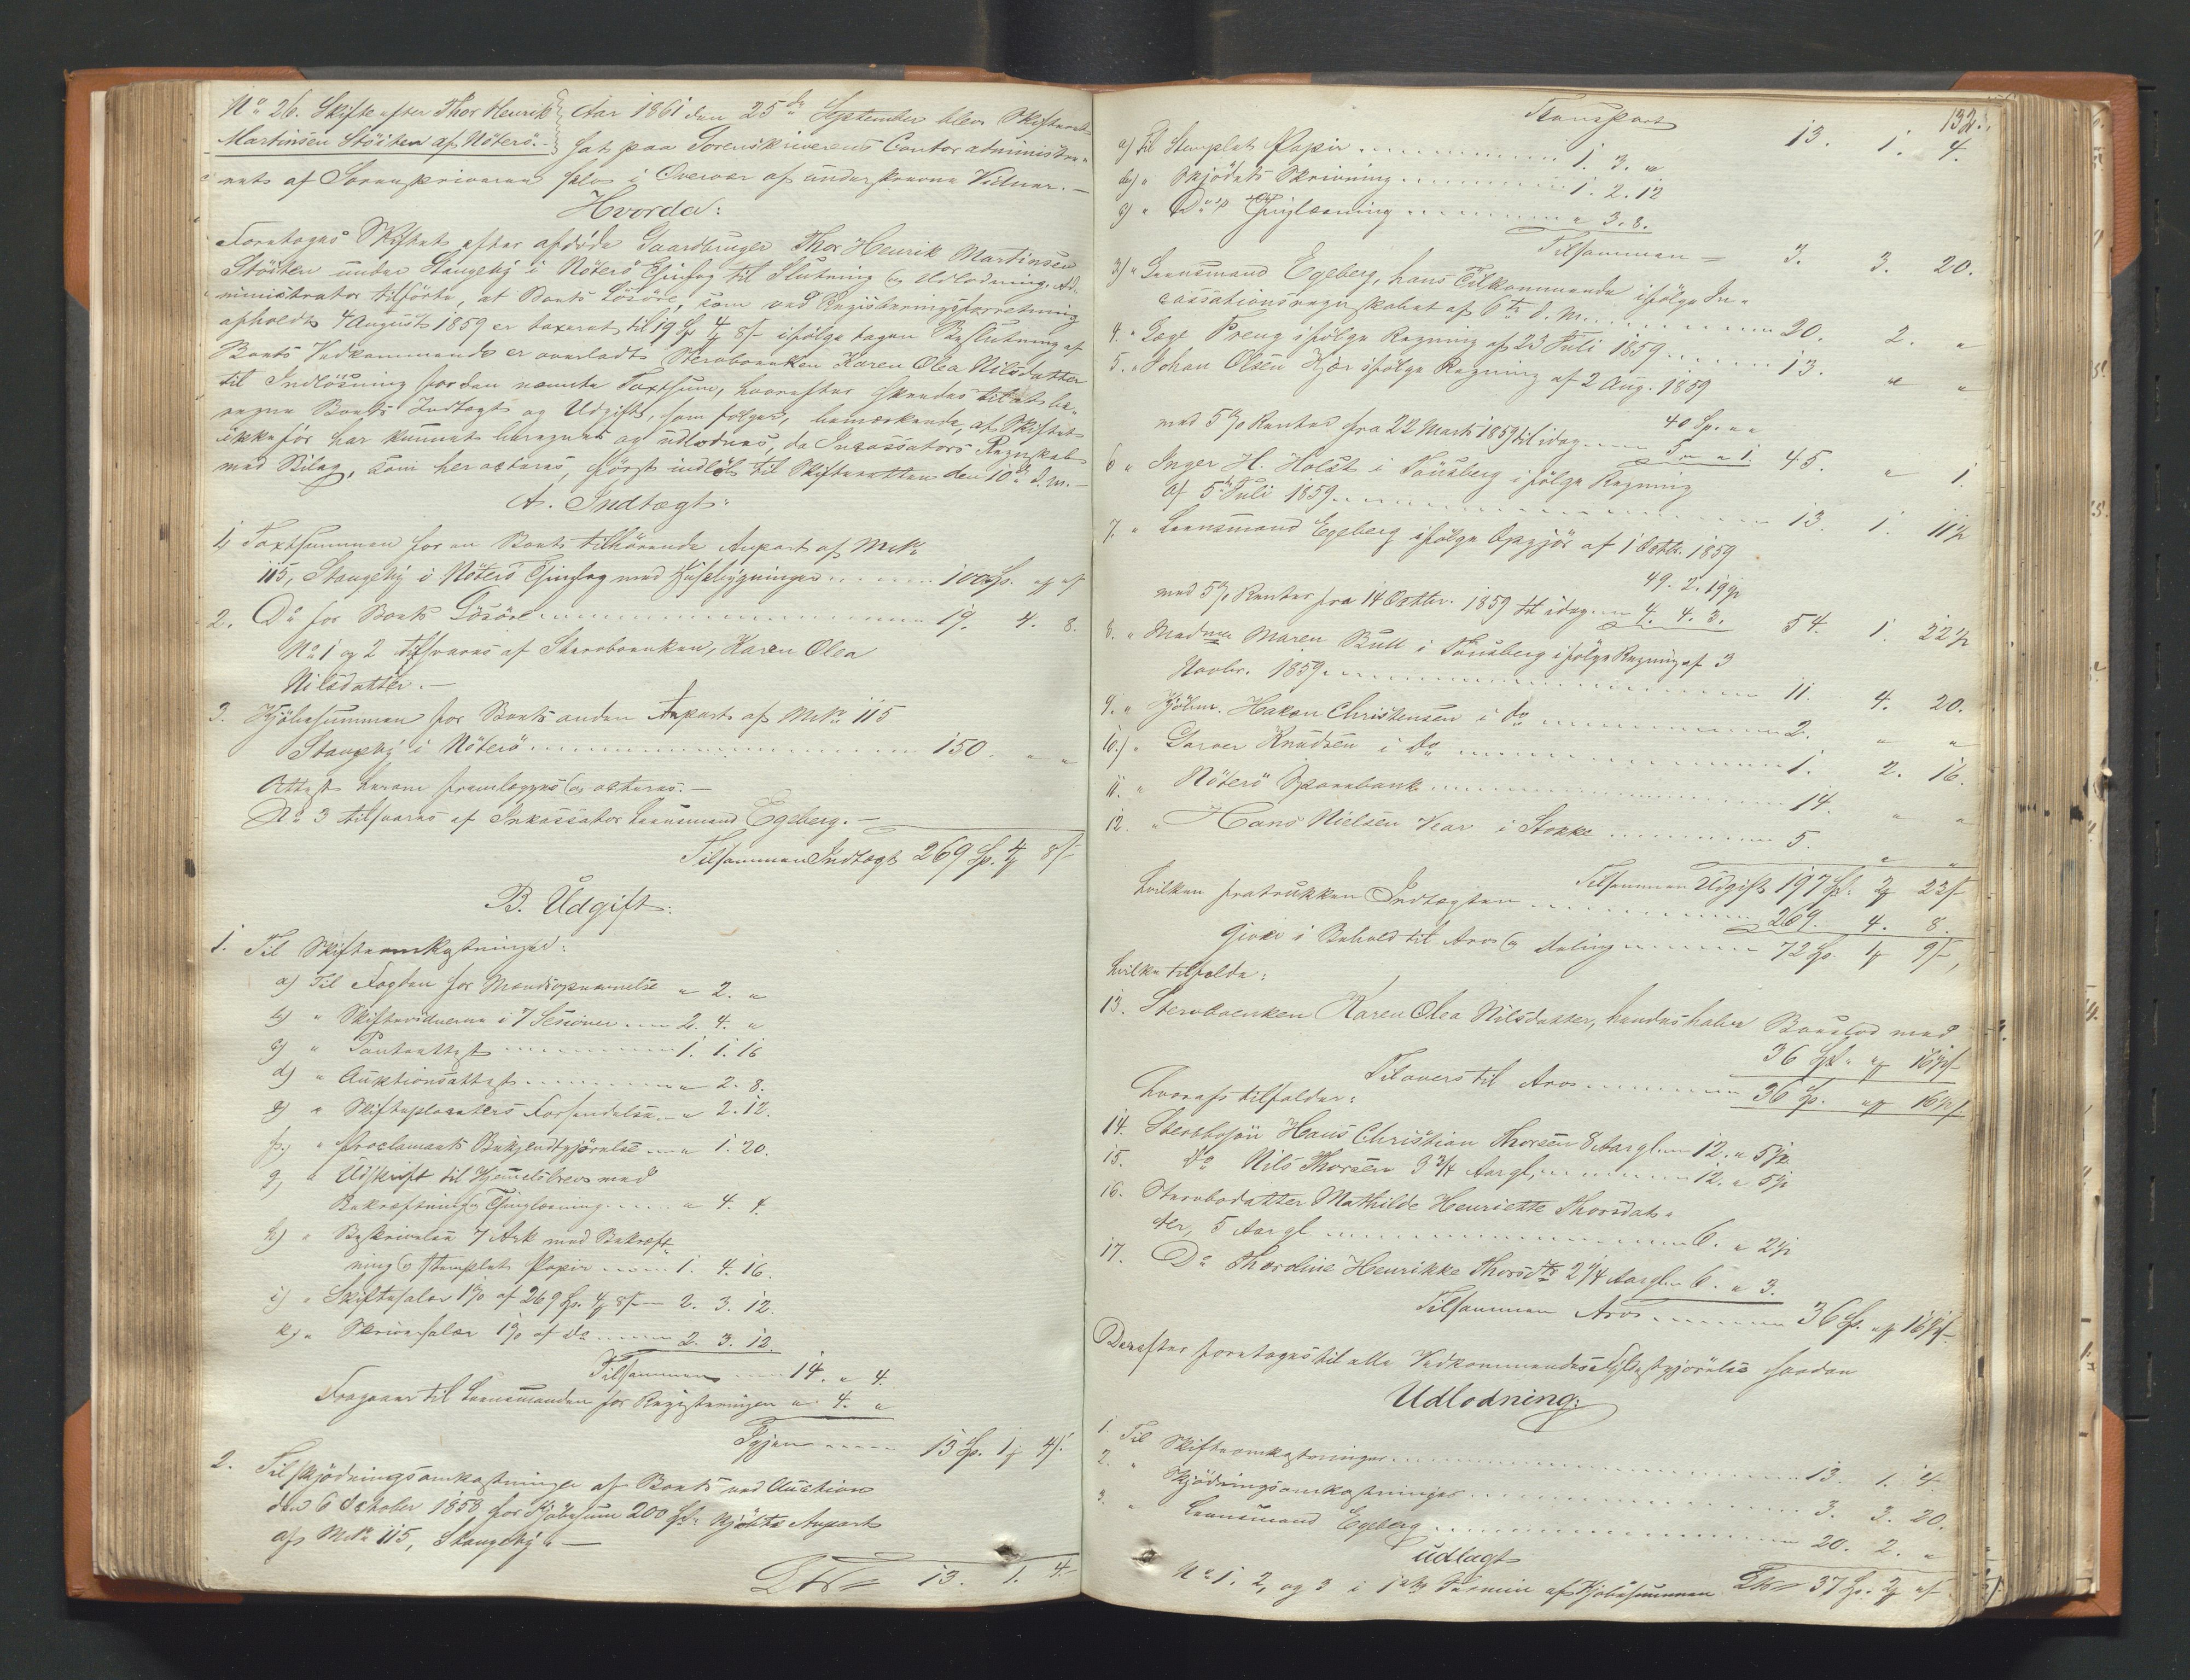 No 26. Skifte efter Thor Henrik
Martinsen Stöiten af Nöterö.-
Aar 1861 den 25de September blev Skifteret
sat paa Sorenskriverens Contor administre-
rets af Sorenskriveren selv i Overvær af underskrevne Vidner.-
Hvorda:
Foretoges Skiftet efter afdöde Gaardbruger Thor Henrik Martinsen
Stöiten under Stangeby i Nöterö Thinglag til Slutning og Udlodning. Ad-
ministrator tilförte, at Boets Lösöre, som ved Registreringsforretning
afholdt 4 August 1859 er taxeret til 19 Sp. 4 # 8 s ifölge tagen Beslutning af
Boets Vedkommende er overladt Sterboenken Karen Olea Nilsdatter
til Indlösning for den nævnte Taxtsum, hvorefter skrides til at be-
regne Boets Indtægt og Udgift, som fölger, bemærkende, at Skiftet
ikke för har kunnet beregnes og udloddes, da Incassators Regnskab
med Bilag, som her acteres, först indlöb til Skifteretten den 10de d. m.-
A. Indtægt:
1, Taxtsummen for en Boets tilhörende Anpart af Mt No
115, Stangeby i Nöterö Thinglag med Husebygninger 100 Sp. " # " s
2. Do for Boets Lösöre 19. 4. 8.
No 1 og 2 tilsvares af Sterboenken, Karen Olea
Nilsdatter.-
3. Kjöbesummen for Boets anden Anpart af Mt No 115
Stangeby i Nöterö 150. " "
Attest herom fremlægges og acteres.-
No 3 tilsvares af Inkassator Lensmand Egeberg.-
Tilsammen Indtægt 269 Sp. 4 # 8 s
B. Udgift:
1. Til Skifteomkostninger:
a) Til Fogden for Mændsopnævnelse " 2. "
b) " Skiftevidnerne i 7 Sesioner 2. 4. "
c) " Panteattest 1. 1. 16
d) " Auktionsattest " 2. 8.
e) " Skifteplacaters Forsendelse " 2. 12.
f.) " Proclamaets Bekjendtgjörelse " 1. 20.
g, " Udskrift til Hjemmelsbrev med
Bekræftning og Thinglæsning " 4. 4.
h) " Beskrivelse 7 Ark med Bekræft-
ning og stemplet Papir 1. 4. 16.
i) " Skiftesalær 1 % af 269 Sp. 4 # 8 s 2. 3. 12.
k) " Skriversalær 1 % af Do 2. 3. 12.
Tilsammen 14. " 4.
Fragaaer til Lensmanden for Registreringen " 4. "
Igjen 13 Sp. 1 # 4 s.
2. Til Skjödningsomkostninger af Boets ved Auction
den 6 Oktober 1858 for Kjöbesum 200 Sp. kjöbte Anpart
af Mt No 115, Stangeby.-
Lts 13. 1. 4.
132.
Transport 13. 1. 4.
a) Til Stemplet Papir 1. 3. "
b) " Skjödets Skrivning 1. 2. 12
c) " Do's Thinglæsning " 3. 8.
Tilsammen = 3. 3. 20.
3) " Lensmand Egeberg, hans Tilkommende ifölge In-
cassationsregnskabet af 6te d. m. 20. 2. "
4. " Læge Preus ifölge Regning af 23 Juli 1859 13. " "
5. " Johan Olsen Hjær ifölge Regning af 2 Aug. 1859
40 Sp. " "
med 5 % Renter fra 22 Marts 1859 til idag 5 " " 1. 45. " 1.
6 " Inger H. Holst i Tönsberg ifölge Regning
af 5 Juli 1859 13. 1. 11½
7. " Lensmand Egeberg ifölge Opgjör af 1 Octbr. 1859
49. 2. 19½
med 5 % Renter fra 14 Octbr. 1859 til idag 4. 4. 3. 54. 1. 22½
8. " Madme Maren Bull i Tönsberg ifölge Regning af 3
Novbr. 1859 11. 4. 20.
9. " Kjöbm. Hakon Christensen i do 2. " "
10.) " Garver Knudsen i do 1. 2. 16.
11. " Nöterö Sparebank 14. " "
12. " Hans Nielsen Vear i Stokke 5. " "
Tilsammen Udgift 197 Sp. 2 # 23 s
hvilken fratrukken Indtægten 269. 4. 8.
Giver i Behold til Arv og Deling 72 Sp. 1 # 9 s,
hvilke tilfalde:
13. Sterboenken Karen Olea Nilsdatter, hendes halve Boeslod med
36 Sp. " # 16½ s
Tilovers til Arv 36 Sp. " # 16½ s
hvoraf tilfalder:
14. Sterbosön Hans Christian Thorsen 8 Aar gl. 12. " 5½
15. do Nils Thorsen 3 3/4 Aar gl. 12. " 5½
16. Sterbodatter Mathilde Henriette Thorsdat-
ter, 5 Aar gl 6. " 2½
17. Do Thordine Henrikke Thorsdtr 2 1/4 Aar gl. 6. " 3.
Tilsammen Arv 36 Sp. " # 16½ s
Derefter foretoges til alle Vedkommendes Fyldestgjörelse saadan
Udlodning:
1. Til Skifteomkostninger 13. 1. 4.
2. " Skjödningsomkostninger 3. 3. 20.
3. " Lensmand Egeberg 20. 2. "
udlagt
No 1. 2, og 3 i 1ste Termin af Kjöbesummen Lts 37 Sp. 2 # " s